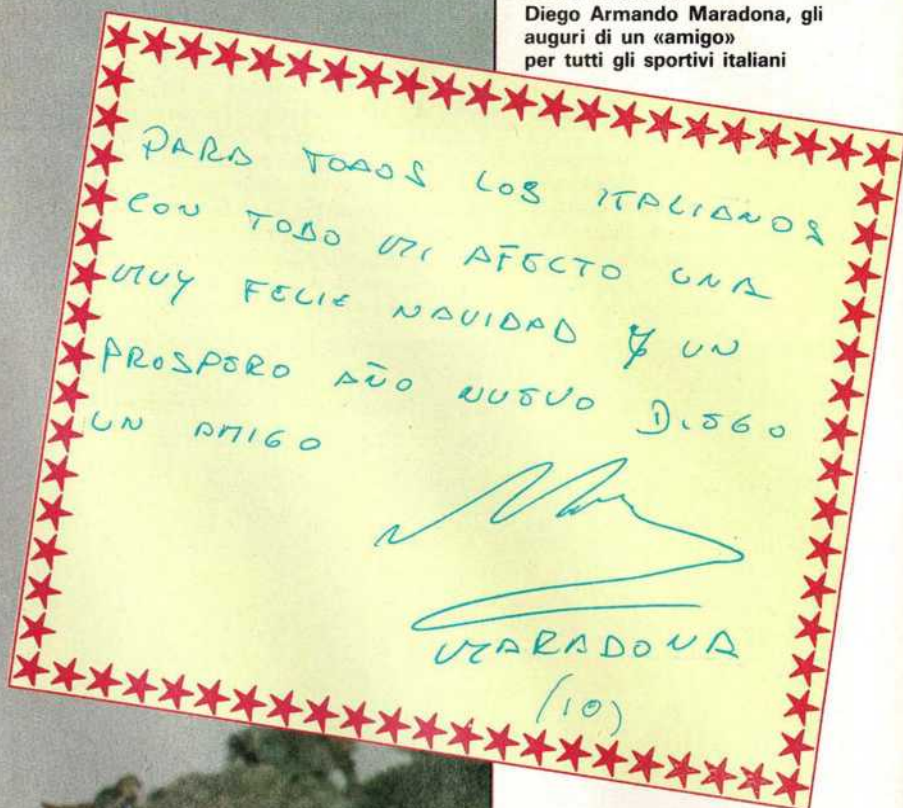 Diego Armando Maradona, gli
auguri di un «amigo»
per tutti gli sportivi italiani
PARA TODOS LOS ITALIANOS
CON TODO MI AFECTO UNA
MUY FELIZ NAVIDAD Y UN
PROSPERO AÑO NUEVO DIEGO
UN AMIGO
MARADONA
(10)